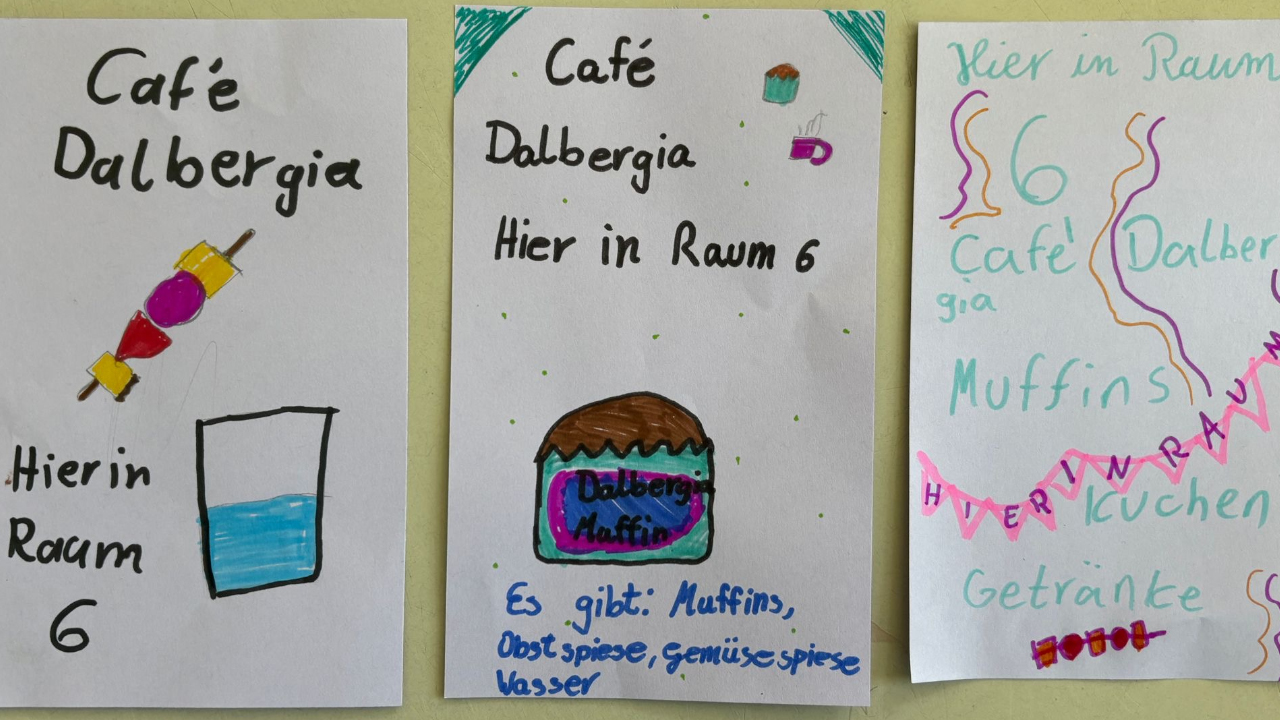 Café
Dalbergia
Hier in
Raum
6
Café
Dalbergia
Hier in Raum 6
Dalbergia
Muffin
Es gibt: Muffins,
Obstspiese, Gemüsespiese
Wasser
Hier in Raum
6
Café Dalber
gia
Muffins
HIER IN RAUM
Kuchen
Getränke